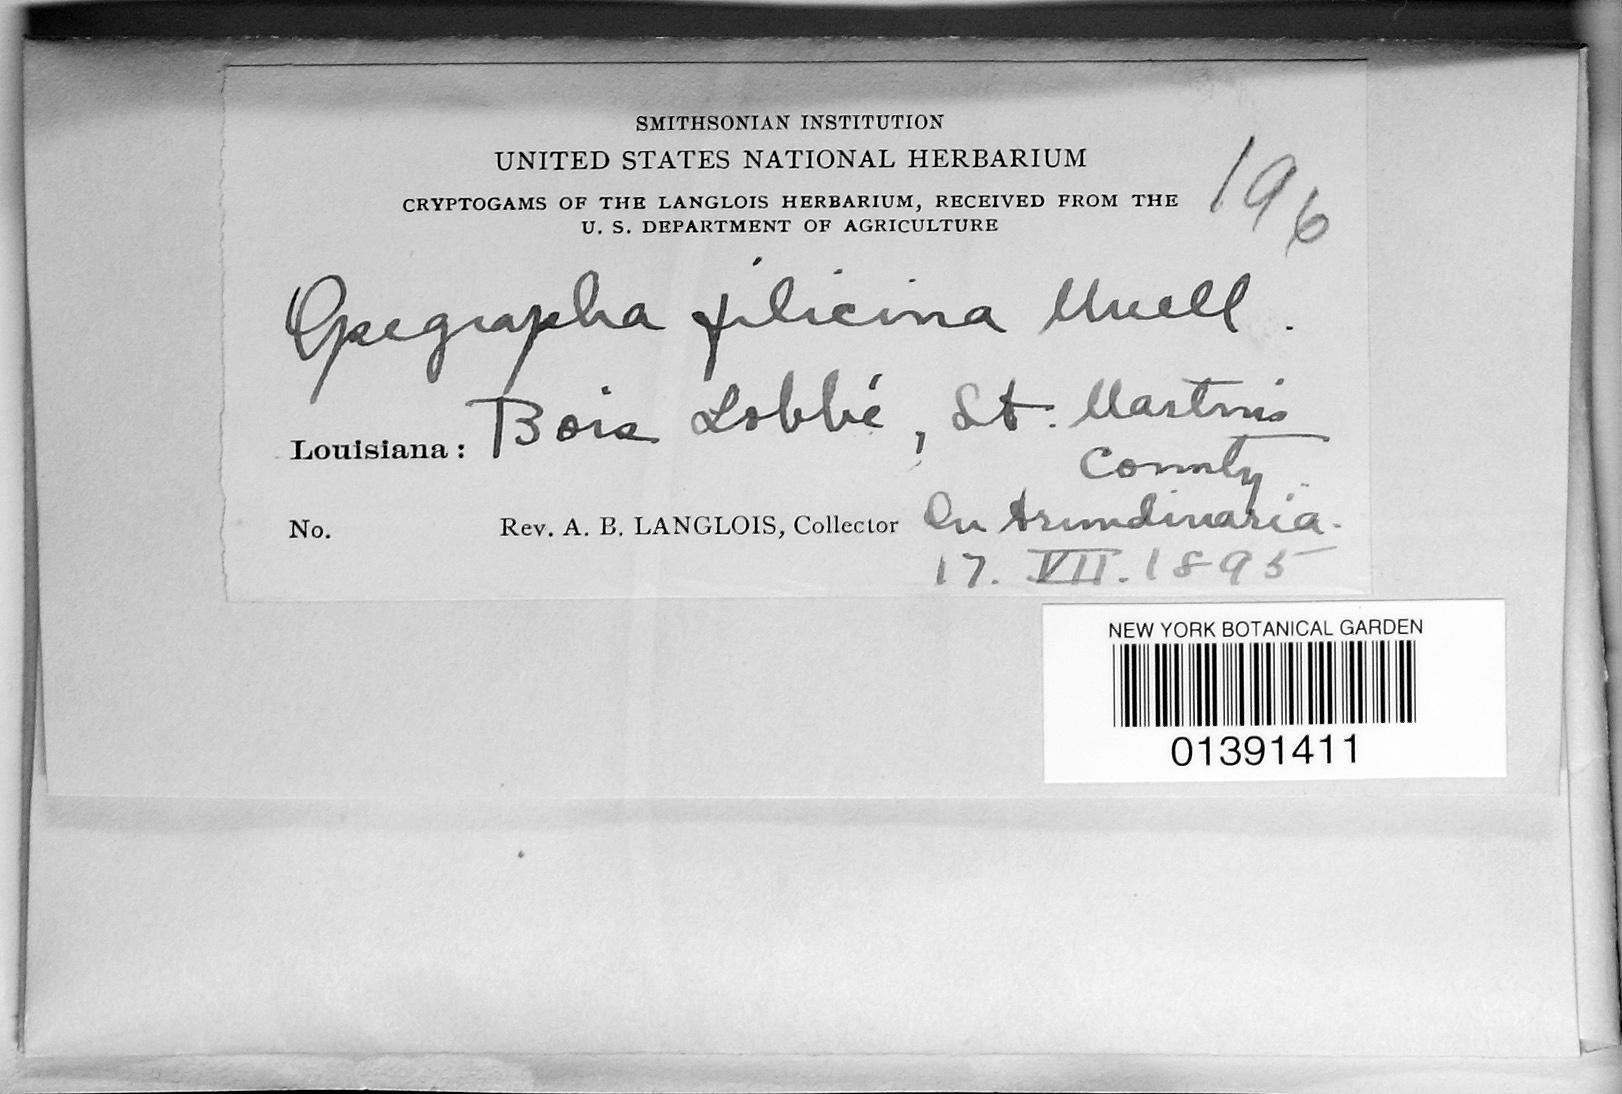 SMITHSONIAN INSTITUTION
UNITED STATES NATIONAL HERBARIUM
CRYPTOGAMS OF THE LANGLOIS HERBARIUM, RECEIVED FROM THE
U. S. DEPARTMENT OF AGRICULTURE
196
Opegrapha filicina Muell.
Louisiana: Bois Lobbé, St. Martins
County
No. Rev. A. B. LANGLOIS, Collector On Arundinaria.
17. VII. 1895
NEW YORK BOTANICAL GARDEN
01391411